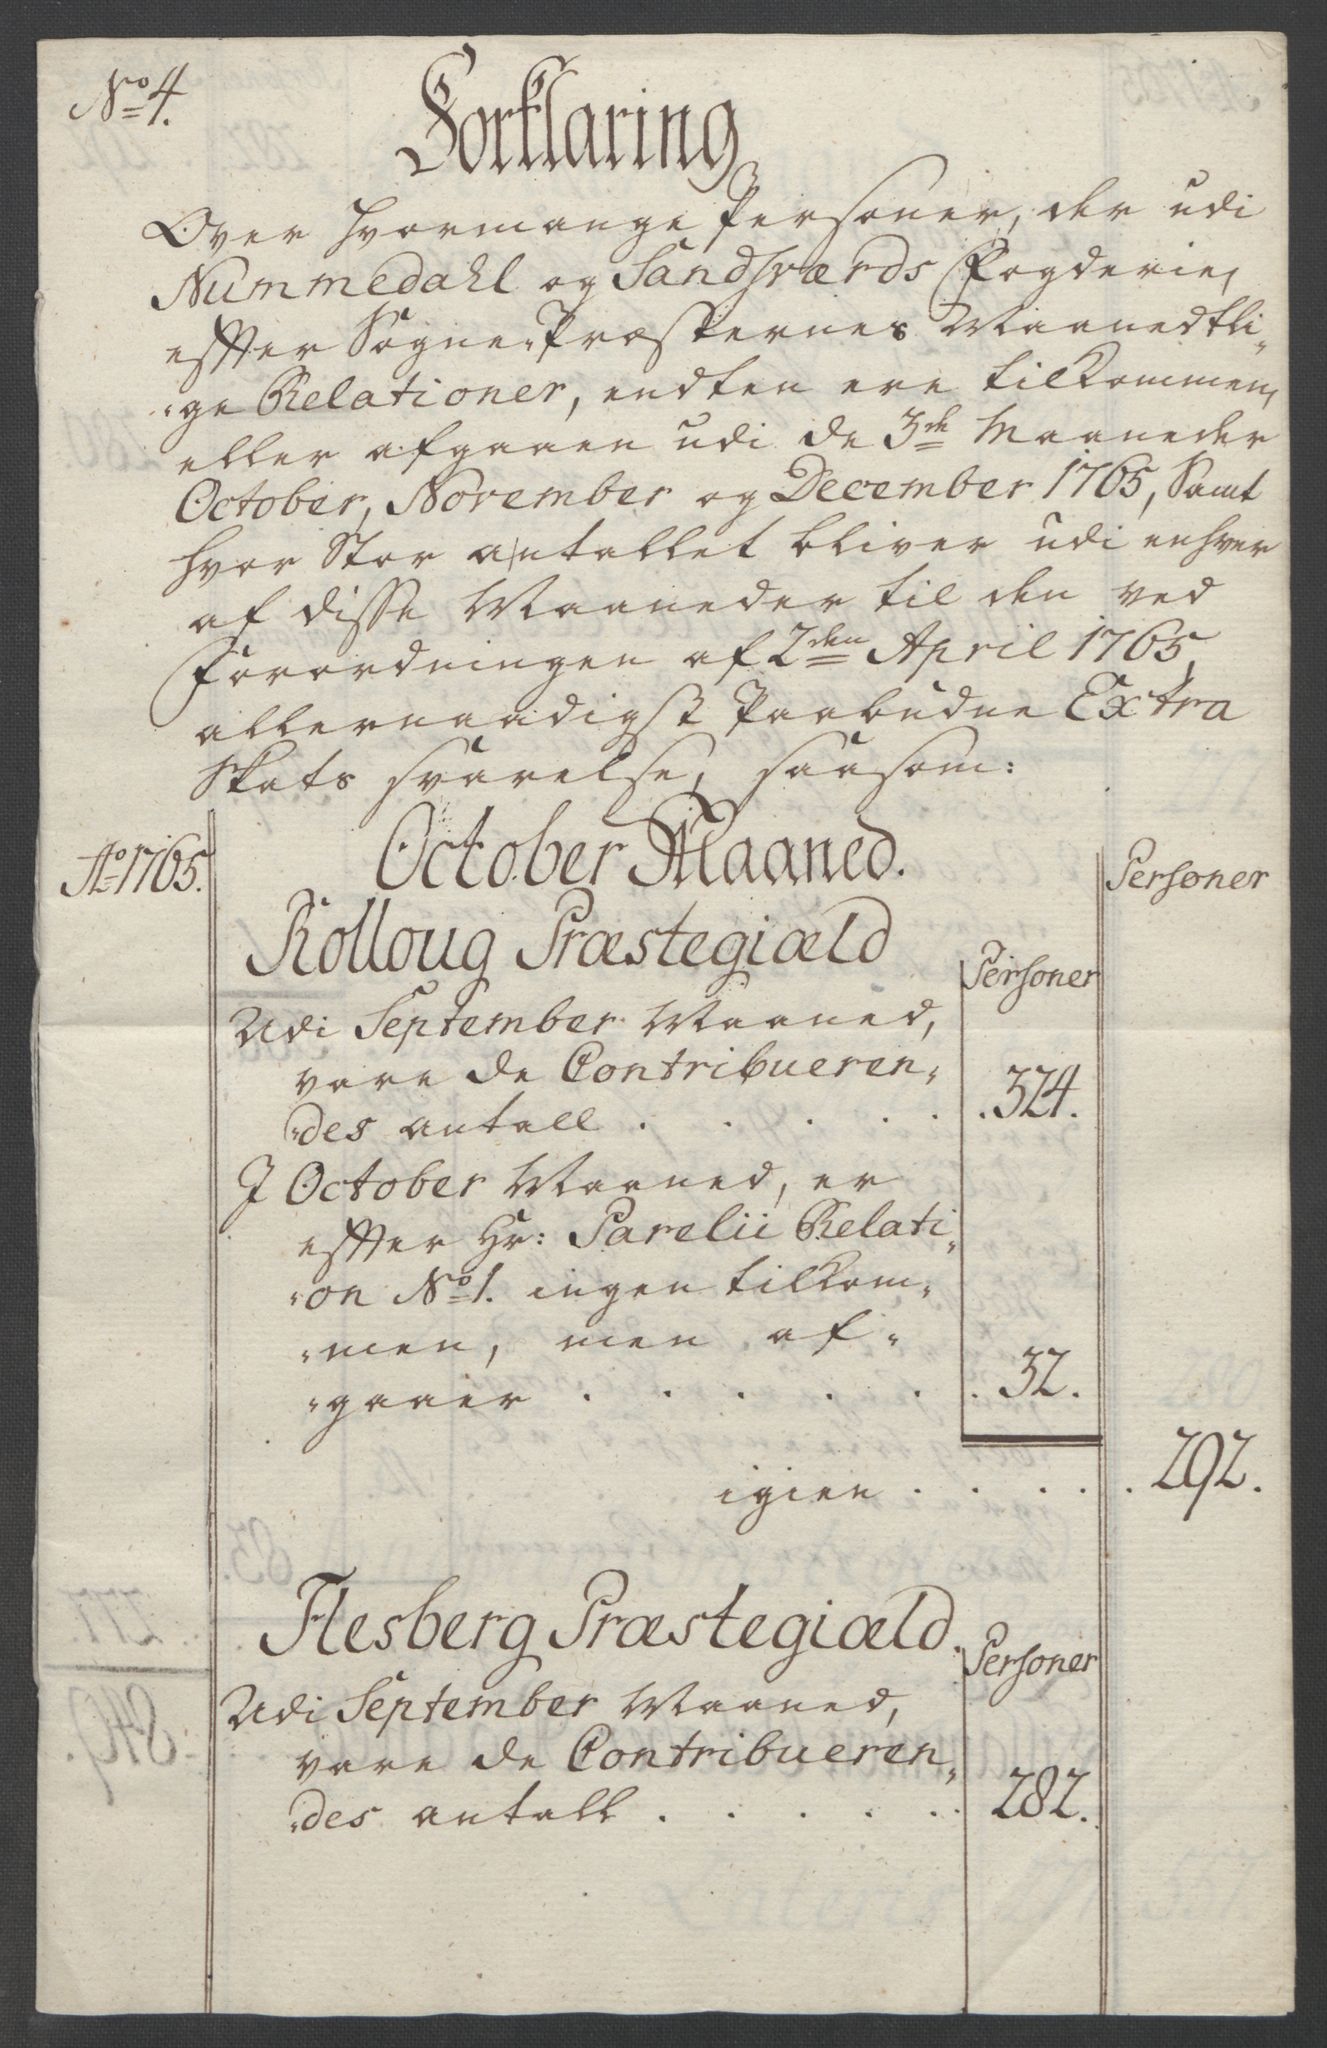 No 4.
Forklaring
Over hvormange Personer, der udi
Nummedahl og Sandsværds Fogderie,
effter Sogne-Præsternes Maanedtli-
-ge Relationer, endten ere tilkommen,
eller afgaaen udi de 3de Maaneder
October, November og December 1765, Samt
hvor Stor antallet bliver udi enhver
af disse Maaneder til den ved
Forordningen af 2den April 1765,
allernaadigst Paabudne Extra
Skats svarelse, saasom:
Ao 1765.
October Maaned.
Personer
Rolloug Præstegiæld
Personer
Udi September Maaned,
vare de Contribueren-
-des antall . . . . . . 324.
I October Maaned, er
effter Hr: Parelii Relati-
-on No 1. ingen tilkom-
-men, men af-
-gaaer . . . . . . 32.
igien . . . . . 292.
Flesberg Præstegiæld.
Personer
Udi September Maaned,
vare de Contribueren-
-des antall . . . . . . 282.